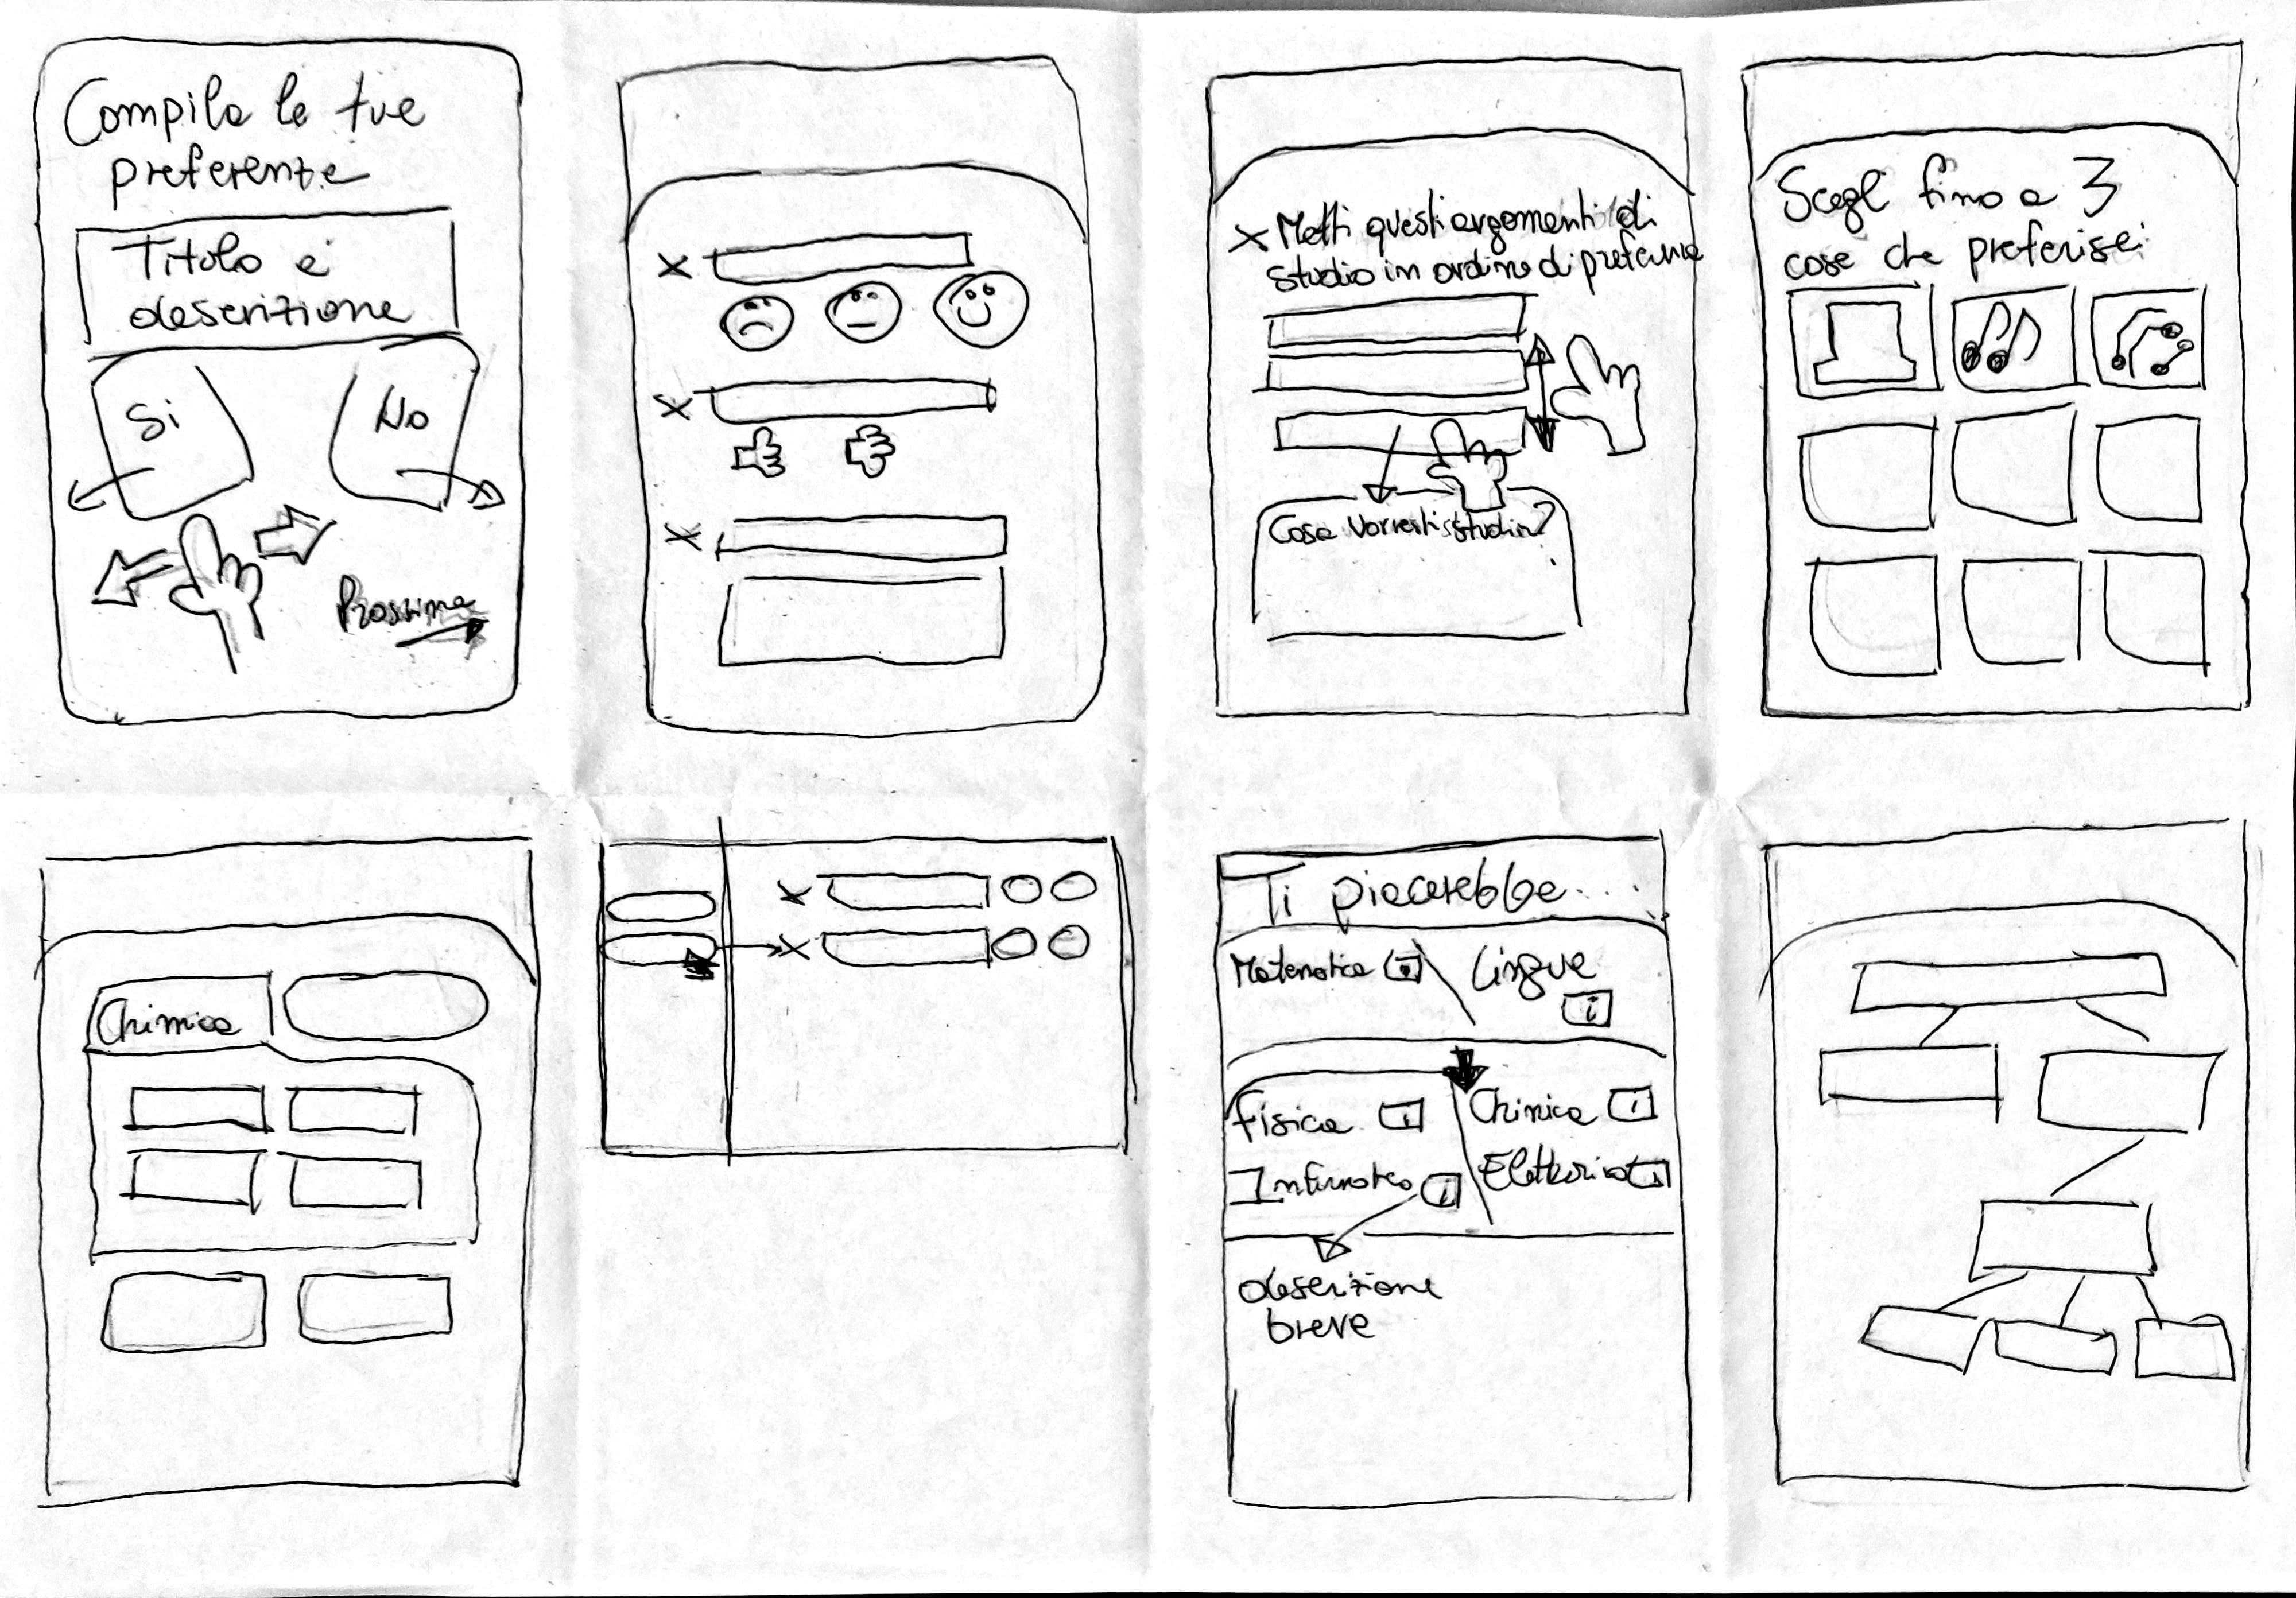 Compila le tue
preferenze
Titolo e
descrizione
Si
No
Prossima
x Metti questi argomenti di
studio in ordine di preferenza
Cosa vorresti studiare?
Scegli fino a 3
cose che preferisci
Chimica
Ti piacerebbe...
Matematica
i
Lingue
i
Fisica i
Chimica i
i
i
descrizione
breve